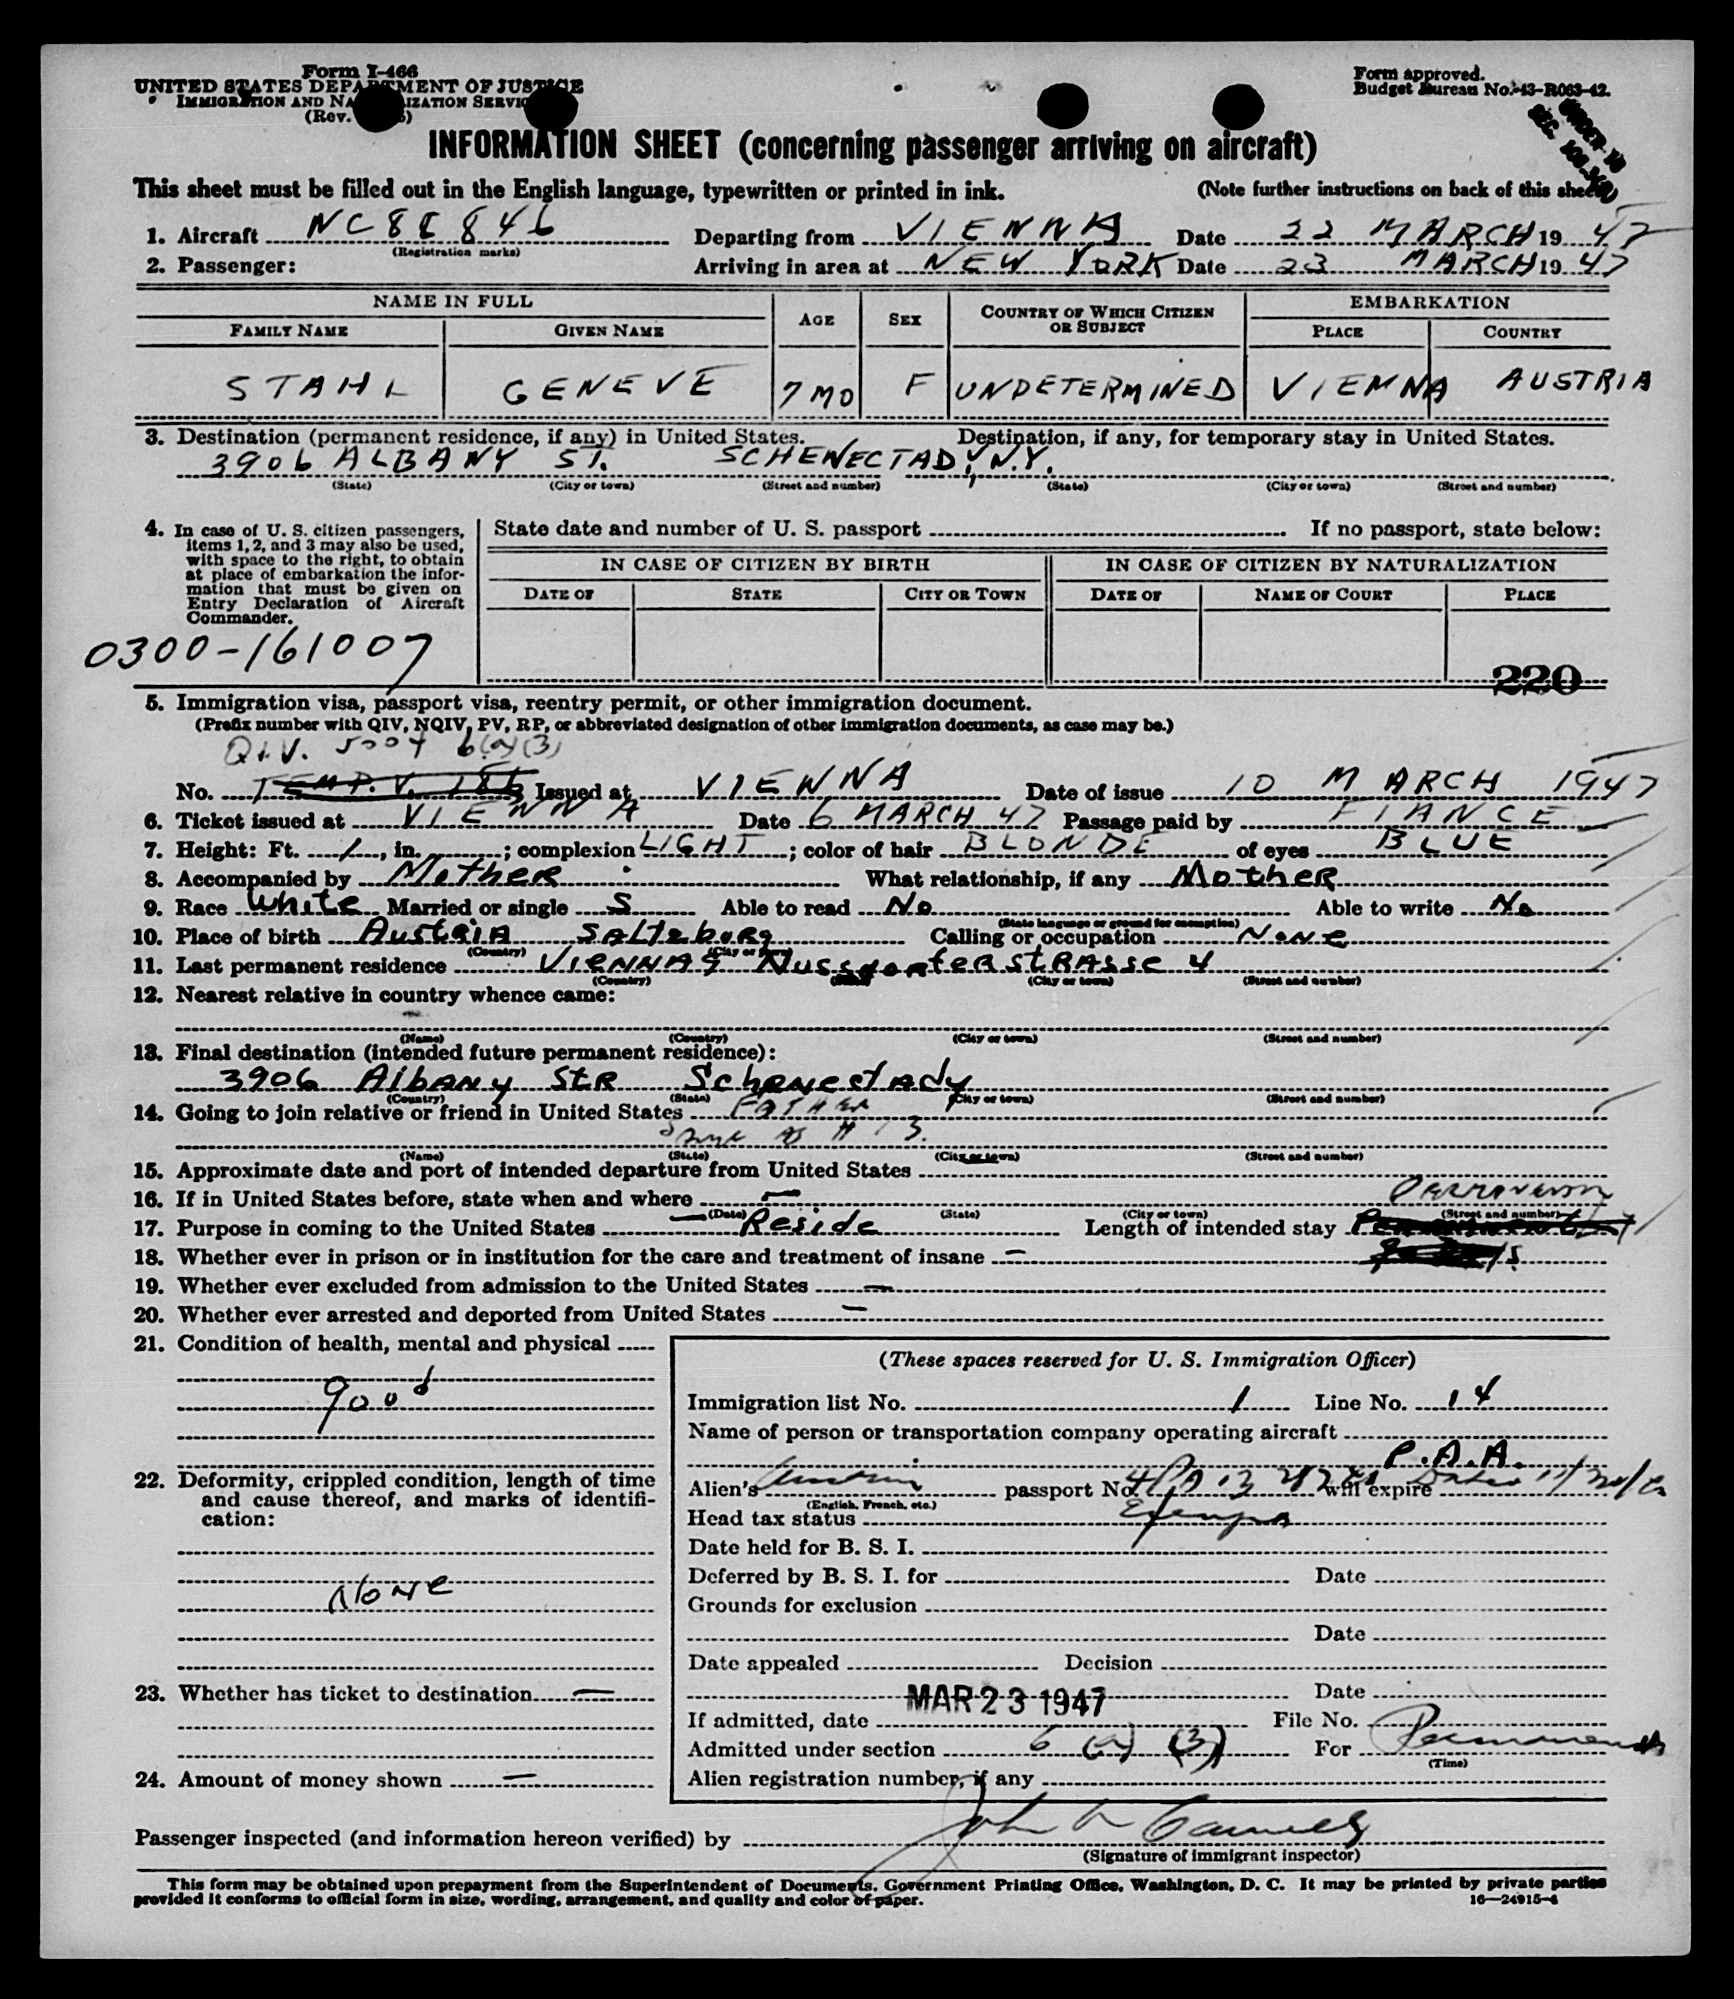 Form I-466
UNITED STATES DEPARTMENT OF JUSTICE
IMMIGRATION AND NATURALIZATION SERVICE
(Rev.
Form approved.
Budget Bureau No. 43-R063-42.
UNDER 16
INFORMATION SHEET (concerning passenger arriving on aircraft)
This sheet must be filled out in the English language, typewritten or printed in ink. (Note further instructions on back of this sheet)
1. Aircraft NC88846 Departing from VIENNA Date 22 MARCH 1947
(Registration marks)
2. Passenger: Arriving in area at NEW YORK Date 23 MARCH 1947
NAME IN FULL AGE SEX COUNTRY OF WHICH CITIZEN OR SUBJECT EMBARKATION
FAMILY NAME GIVEN NAME PLACE COUNTRY
STAHL GENEVE 7 MO F UNDETERMINED VIENNA AUSTRIA
3. Destination (permanent residence, if any) in United States. Destination, if any, for temporary stay in United States.
3906 ALBANY ST. SCHENECTADY, N.Y.
(State) (City or town) (Street and number) (State) (City or town) (Street and number)
4. In case of U. S. citizen passengers, items 1, 2, and 3 may also be used, with space to the right, to obtain at place of embarkation the information that must be given on Entry Declaration of Aircraft Commander.
0300-161007
State date and number of U. S. passport If no passport, state below:
IN CASE OF CITIZEN BY BIRTH IN CASE OF CITIZEN BY NATURALIZATION
DATE OF STATE CITY OR TOWN DATE OF NAME OF COURT PLACE
220
5. Immigration visa, passport visa, reentry permit, or other immigration document.
(Prefix number with QIV, NQIV, PV, RP, or abbreviated designation of other immigration documents, as case may be.)
QIV. 5007 6(a)(3)
No. TEMP. V. 186 Issued at VIENNA Date of issue 10 MARCH 1947
6. Ticket issued at VIENNA Date 6 MARCH 47 Passage paid by FIANCE
7. Height: Ft. 1, in. ; complexion LIGHT; color of hair BLONDE of eyes BLUE
8. Accompanied by Mother What relationship, if any Mother
9. Race White Married or single S Able to read No Able to write No
(State language or ground for exemption)
10. Place of birth Austria Saltzburg Calling or occupation None
(Country) (City or town)
11. Last permanent residence Vienna 9 Nussdorferstrasse 4
(Country) (State) (City or town) (Street and number)
12. Nearest relative in country whence came:
(Name) (Country) (City or town) (Street and number)
13. Final destination (intended future permanent residence):
3906 Albany Str Schenectady
(Country) (State) (City or town) (Street and number)
14. Going to join relative or friend in United States FATHER
Same as # 13.
(Name) (State) (City or town) (Street and number)
15. Approximate date and port of intended departure from United States
16. If in United States before, state when and where —
(Date) (State) (City or town) (Street and number)
Permanent
17. Purpose in coming to the United States — Reside Length of intended stay Permanently
18. Whether ever in prison or in institution for the care and treatment of insane —
19. Whether ever excluded from admission to the United States —
20. Whether ever arrested and deported from United States —
21. Condition of health, mental and physical
good
22. Deformity, crippled condition, length of time and cause thereof, and marks of identification:
None
23. Whether has ticket to destination —
24. Amount of money shown —
(These spaces reserved for U. S. Immigration Officer)
Immigration list No. 1 Line No. 14
Name of person or transportation company operating aircraft
P.A.A.
Alien's Austrian passport No. will expire
(English, French, etc.)
Head tax status Exempt
Date held for B. S. I.
Deferred by B. S. I. for Date
Grounds for exclusion
Date
Date appealed Decision
Date
If admitted, date MAR 23 1947 File No.
Admitted under section 6 (a) (3) For Permanent
(Time)
Alien registration number, if any
Passenger inspected (and information hereon verified) by John
(Signature of immigrant inspector)
This form may be obtained upon prepayment from the Superintendent of Documents, Government Printing Office, Washington, D. C. It may be printed by private parties
provided it conforms to official form in size, wording, arrangement, and quality and color of paper. 16—24915-4